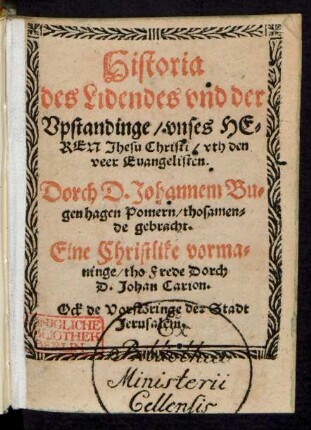 Historia
des Lidendes vnd der
Vpstandinge / vnses HE-
REN Jhesu Christi / vth den
veer Euangelisten.
Dorch D. Johannem Bu-
genhagen Pomern / thosamen-
de gebracht.
Eine Christlike vorma-
ninge / tho Frede Dorch
D. Johan Carion.
Ock de Vorstöringe der Stadt
Jerusalem.
KÖNIGLICHE
BIBLIOTHEK
BERLIN
Ministerii
Cellensis